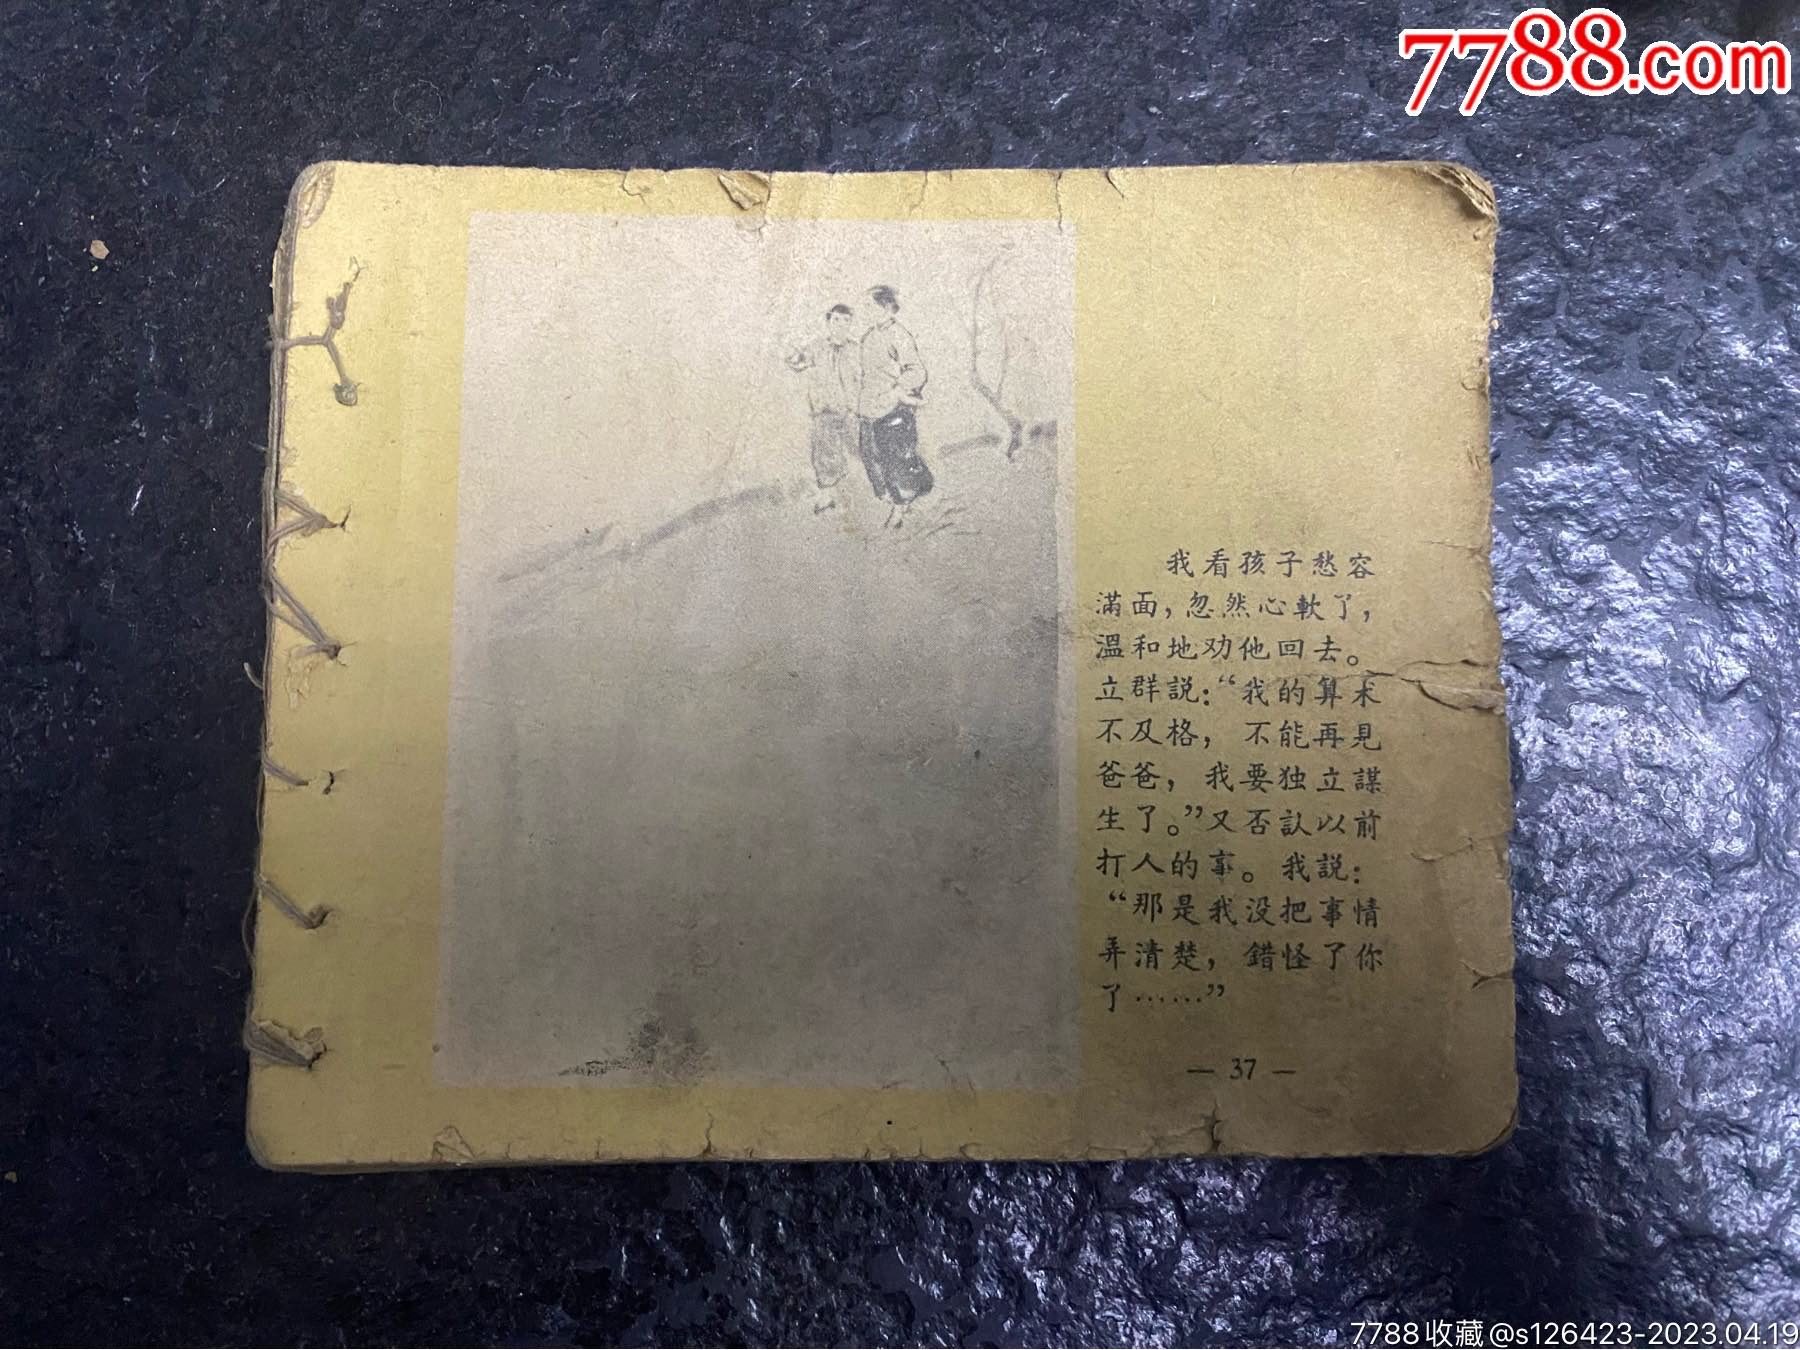 7788.com
我看孩子愁容
滿面，忽然心軟了，
溫和地劝他回去。
立群説：“我的算术
不及格，不能再見
爸爸，我要独立謀
生了。”又否认以前
打人的事。我説：
“那是我没把事情
弄清楚，錯怪了你
了……”
— 37 —
7788收藏@s126423-2023.04.19